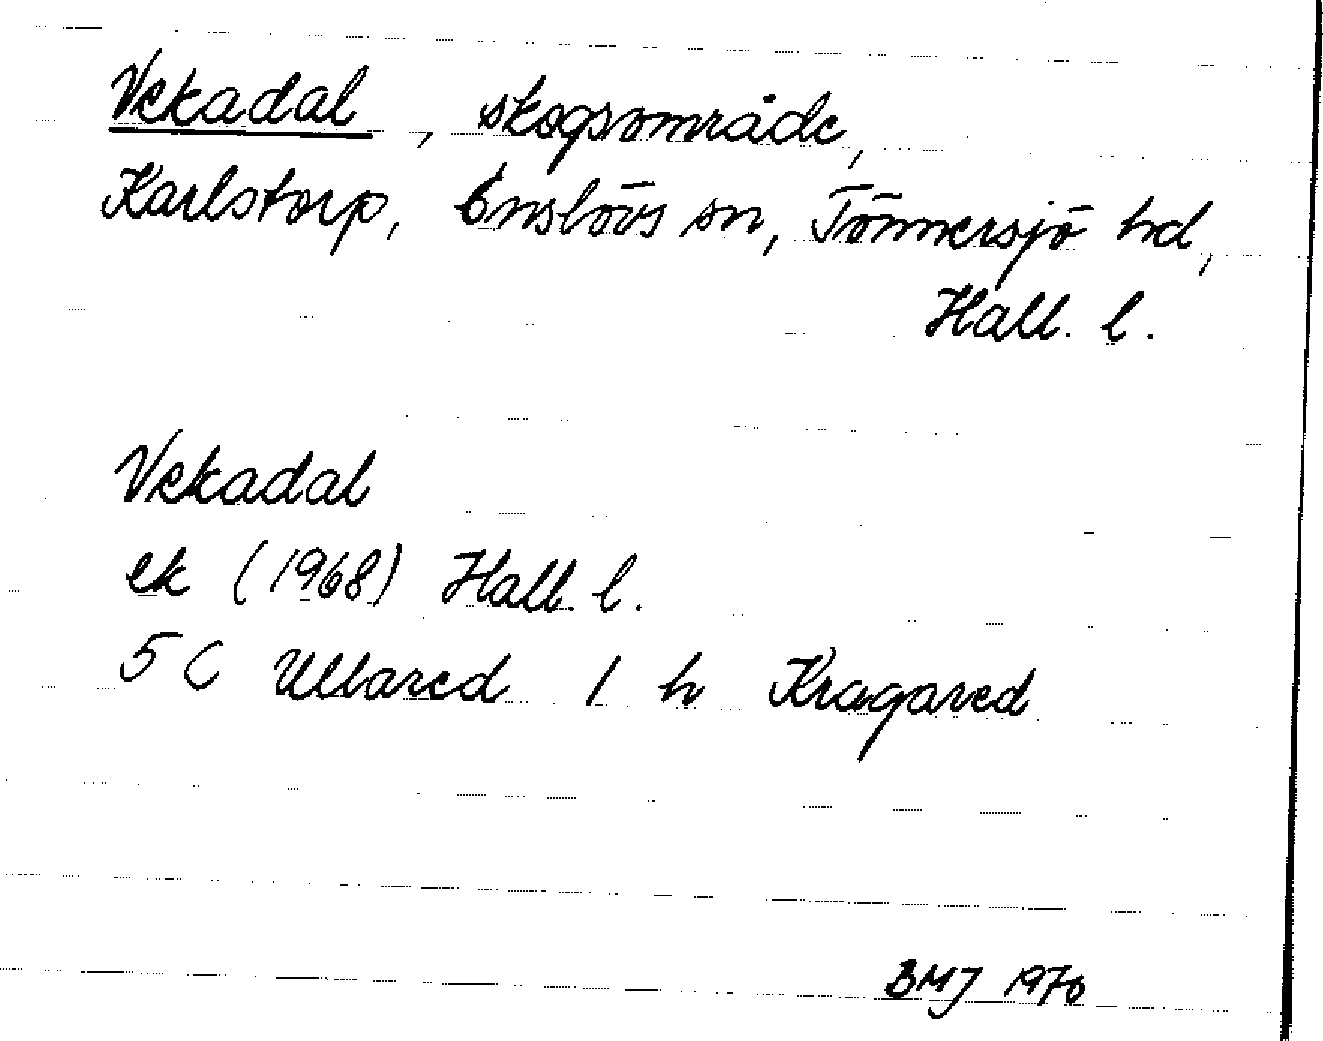 Vekadal, skogsområde,
Karlstorp, Enslövs sn, Tönnersjö hd,
Hall. l.
Vekadal
ek (1968) Hall. l.
5 C Ullared 1 h Kragared
BMJ 1970